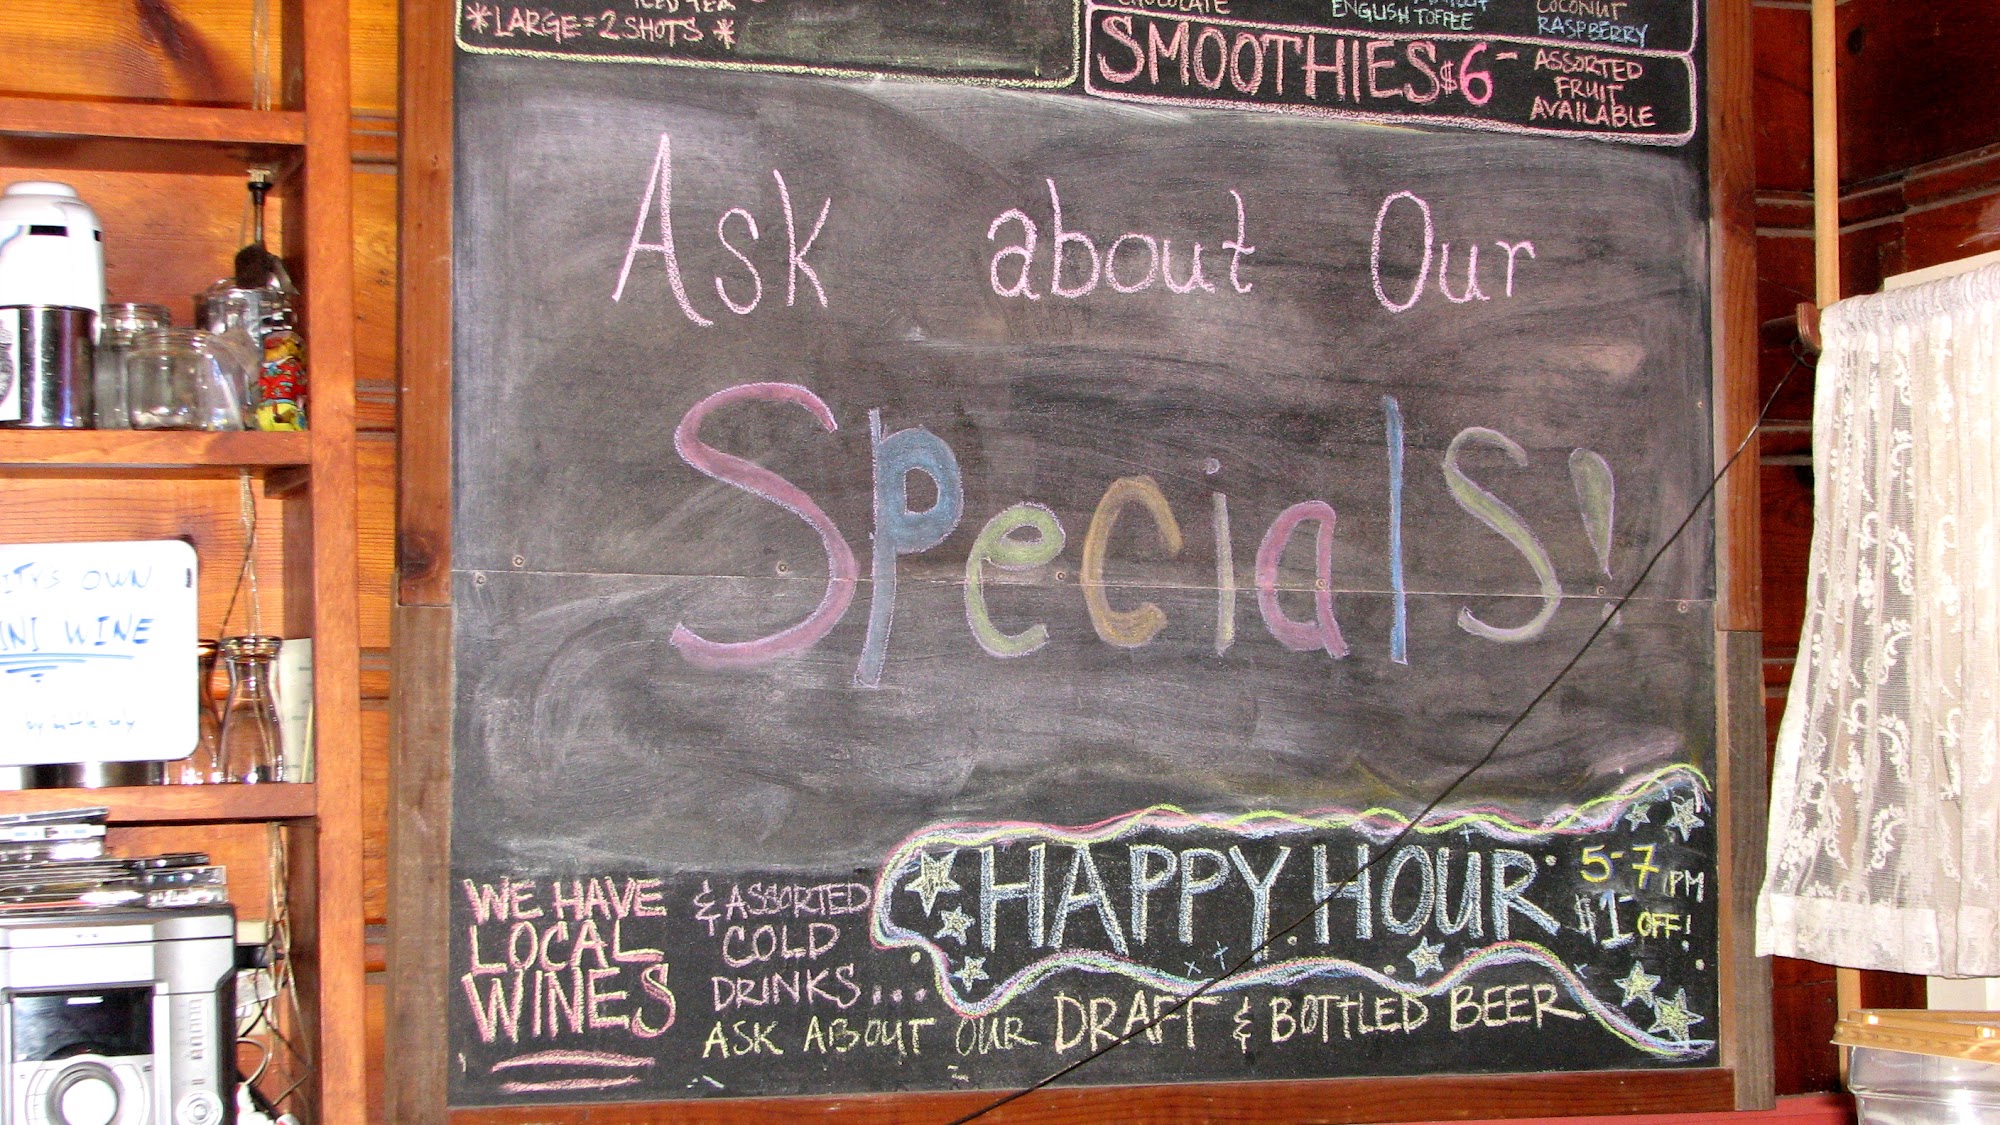 ICED TEA
*LARGE=2 SHOTS*
CHOCOLATE
ENGLISH TOFFEE
COCONUT
RASPBERRY
SMOOTHIES $6-
ASSORTED
FRUIT
AVAILABLE
Ask about Our
Specials!
OWN
WINE
HAPPY HOUR 5-7 PM
$1 OFF!
WE HAVE
LOCAL
WINES
& ASSORTED
COLD
DRINKS...
ASK ABOUT OUR DRAFT & BOTTLED BEER